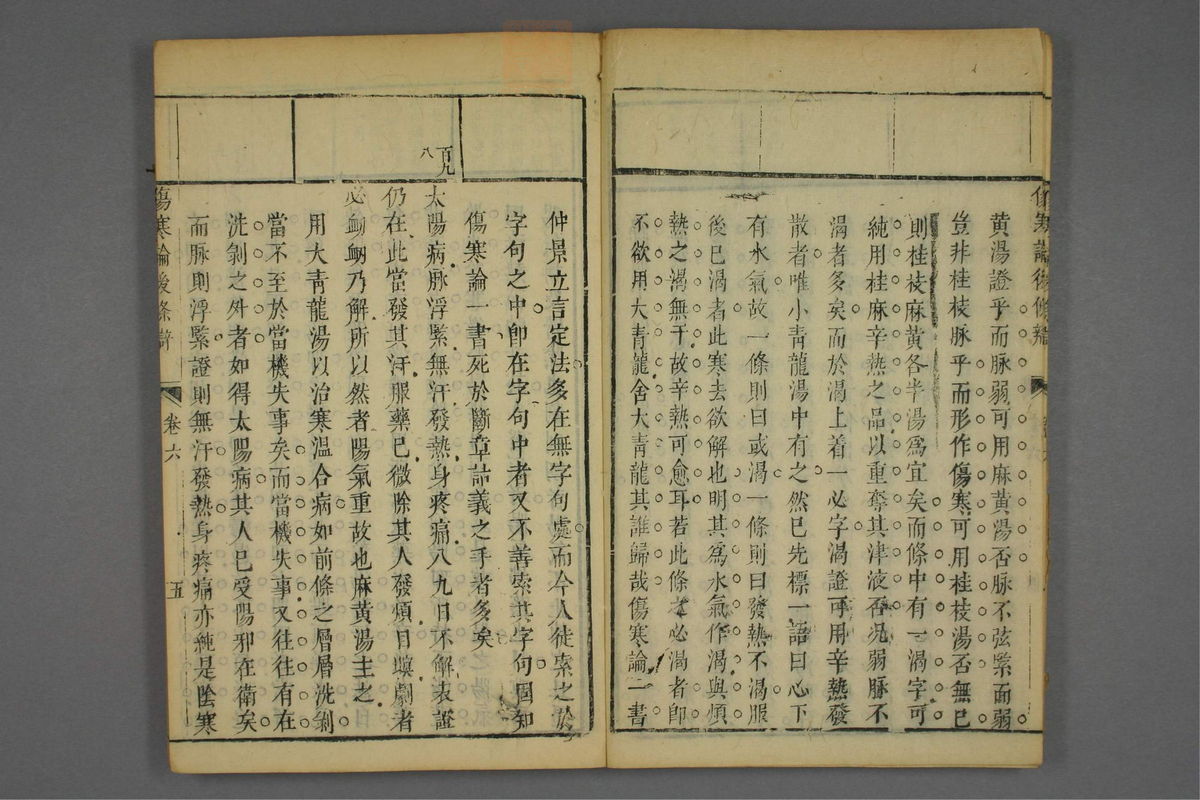 黃湯證乎而脉弱可用麻黃湯否脉不弦緊而弱
豈非桂枝脉乎而形作傷寒可用桂枝湯否無已
則桂枝麻黃各半湯爲宜矣而條中有一渴字可
純用桂麻辛熱之品以重奪其津液否况弱脉不
渴者多矣而於渴上着一必字渴證可用辛熱發
散者唯小青龍湯中有之然已先標一語曰心下
有水氣故一條則曰或渴一條則曰發熱不渴服
後已渴者此寒去欲解也明其爲水氣作渴與煩
熱之渴無干故辛熱可愈耳若此條之必渴者即
不欲用大青龍舍大青龍其誰歸哉傷寒論一書
仲景立言定法多在無字句處而今人徒索之於
字句之中卽在字句中者又不善索其字句固知
傷寒論一書死於斷章詁義之手者多矣
百九
八
太陽病脉浮緊無汗發熱身疼痛八九日不解表證
仍在此當發其汗服藥已微除其人發煩目瞑劇者
必衄衄乃解所以然者陽氣重故也麻黃湯主之
用大青龍湯以治寒溫合病如前條之層層洗剝
當不至於當機失事矣而當機失事又往往有在
洗剝之外者如得太陽病其人已受陽邪在衛矣
而脉則浮緊證則無汗發熱身疼痛亦純是陰寒
傷寒論後條辯
卷六
五